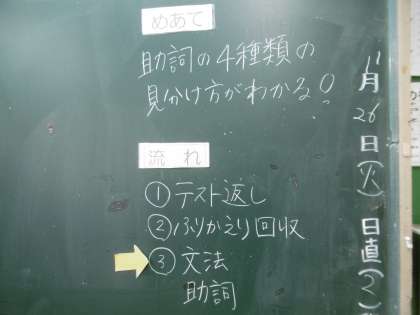 めあて
助詞の4種類の
見分け方がわかる!
流れ
①テスト返し
②ふりかえり回収
③文法
助詞
11月26日(火)日直(